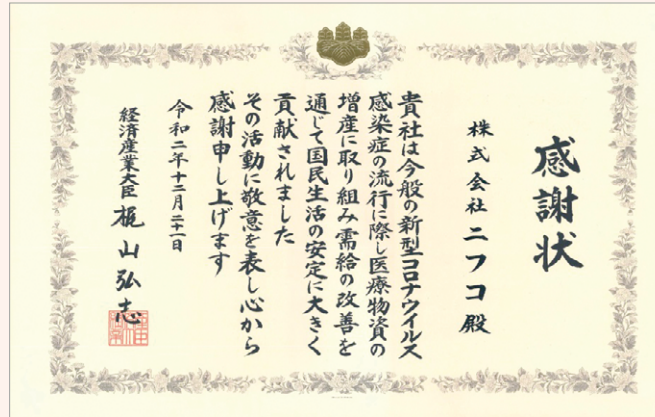 感謝状
株式会社ニフコ殿
貴社は今般の新型コロナウイルス
感染症の流行に際し医療物資の
増産に取り組み需給の改善を
通じて国民生活の安定に大きく
貢献されました
その活動に敬意を表し心から
感謝申し上げます
令和二年十二月二十一日
経済産業大臣 梶山弘志